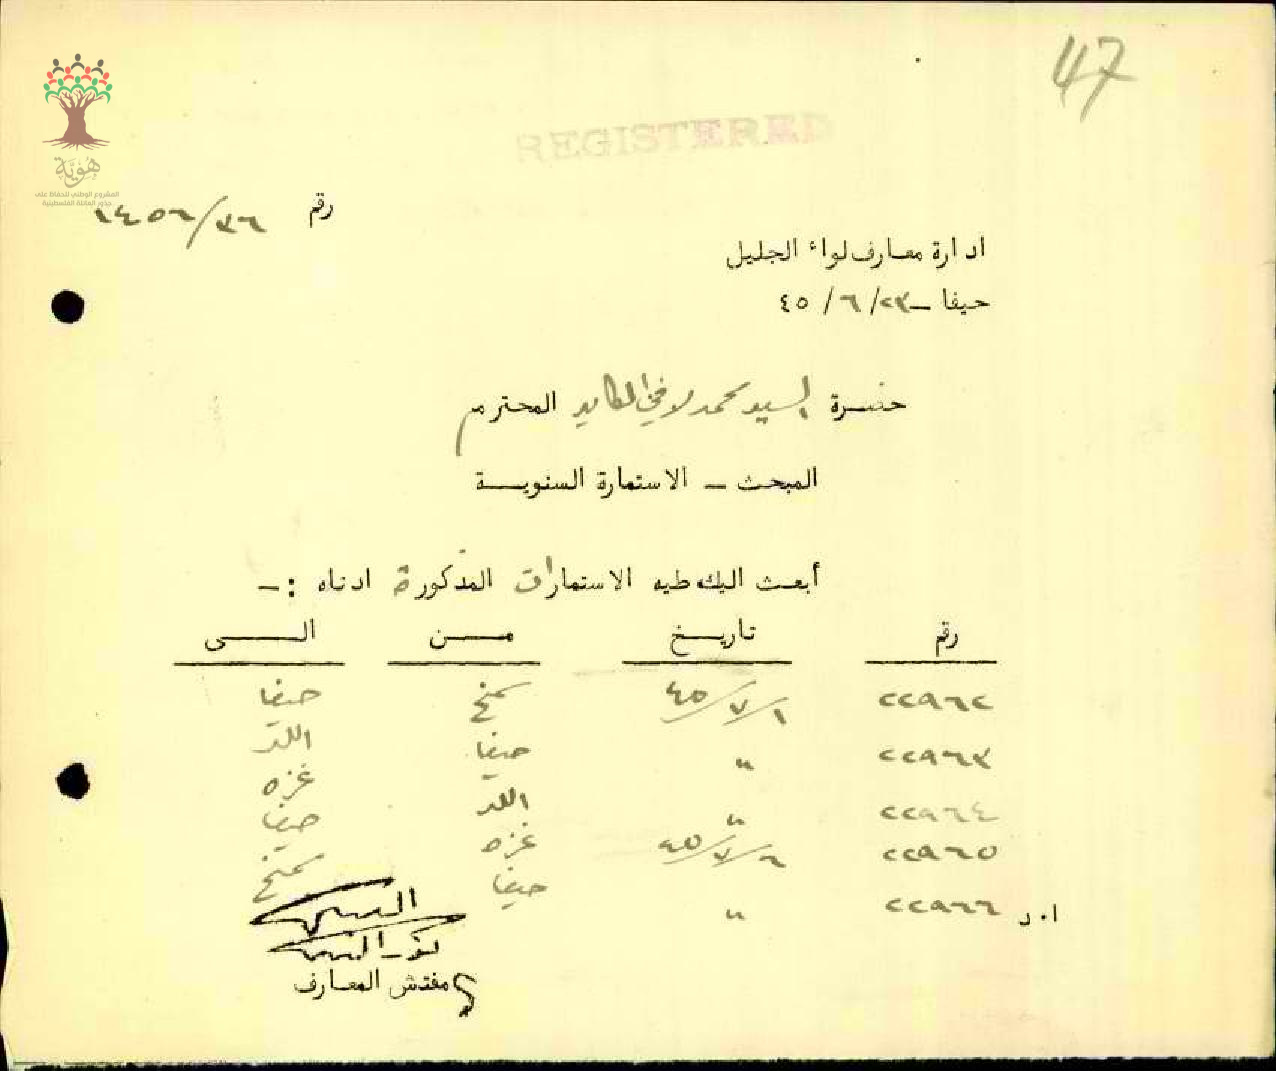 47
هُوِيَّة
المشروع الوطني للحفاظ على
جذور العائلة الفلسطينية
REGISTERED
رقم ٣٦/١٤٥٦
ادارة معارف لواء الجليل
حيفا – ٢٣/ ٦/ ٤٥
حضرة السيد محمد المحترم
المبحث – الاستمارة السنوية
أبعث اليك طيه الاستمارات المذكورة ادناه :–
رقم تاريخ من الى
٢٢٩٦٢ ٤٥/٧/١ سمخ حيفا
٢٢٩٦٣ " حيفا اللد
٢٢٩٦٤ " اللد غزه
٢٢٩٦٥ ٤٥/٧/٦ غزه حيفا
٢٢٩٦٦ " حيفا سمخ
ا.د
مفتش المعارف